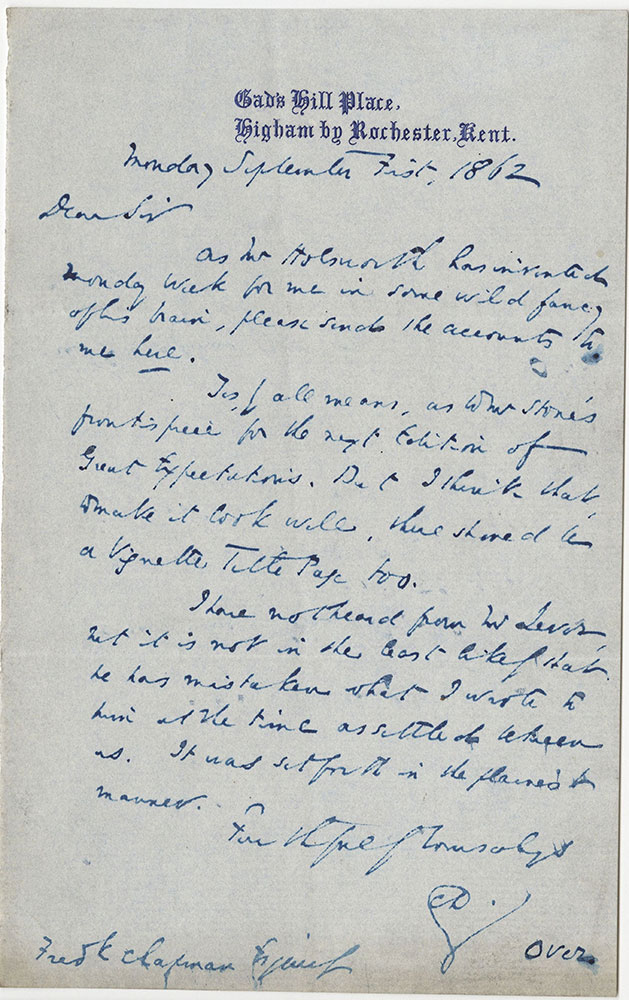 Gad's Hill Place,
Higham by Rochester, Kent.
Monday September First, 1862
Dear Sir
As Mr Holsworth has invented
Monday Week for me in some wild fancy
of his brain, please send the accounts to
me here.
Yes, by all means, as to Mr Stone's
frontispiece for the next Edition of
Great Expectations. But I think that,
to make it look well, there should be
a Vignette Title Page too.
I have not heard from Mr Lever,
but it is not in the least likely that
he has mistaken what I wrote to
him at the time as settled between
us. It was set forth in the plainest
manner.
Faithfully Yours always
CD.
Over.
Fredk Chapman Esquire